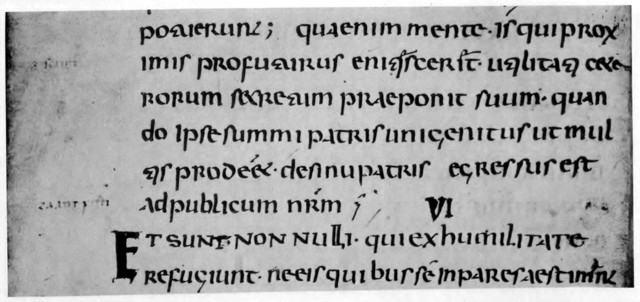 potuerunt; quaenim mente· is qui prox
imis profuturus enitisceret· utilitati cete
rorum secretum praeponit suum· quan
do ipse summi patris unigenitus ut mul
tis prodeet· desinu patris egressus est
ad publicum nrm;
VI
ET SUNT· NON NULLI· qui ex humilitate
refugiunt· ne eis quibus se inpares aestimant